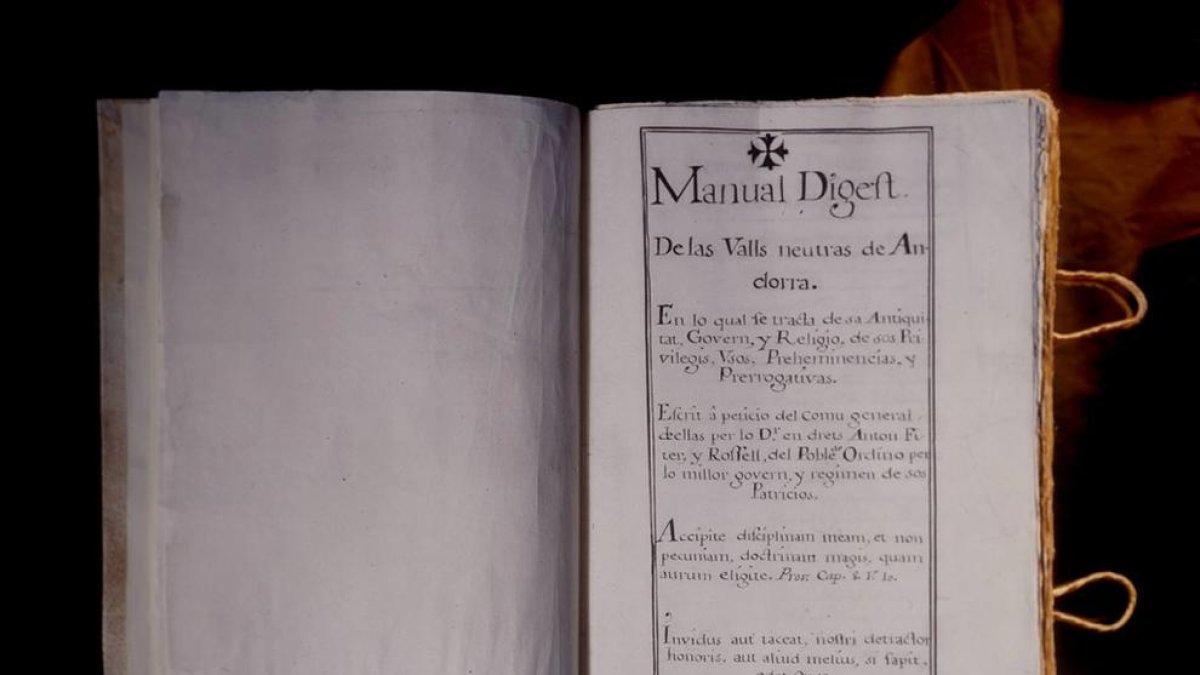 Manual Digest.
De las Valls neutras de An-
dorra.
En lo qual se tracta de sa Antiqui-
tat, Govern, y Religio, de sos Pri-
vilegis, Usos, Preheminencias, y
Prerrogativas.
Escrit â peticio del Comu general
dellas per lo Dr. en drets Anton Fi-
ter, y Rossell, del Poble de Ordino per
lo millor govern, y regimen de sos
Patricios.
Accipite disciplinam meam, et non
pecuniam, doctrinam magis, quam
aurum eligite. Prov. Cap. 8. V. 10.
Invidus aut taceat, nostri detractor
honoris, aut aliud melius, si sapit,